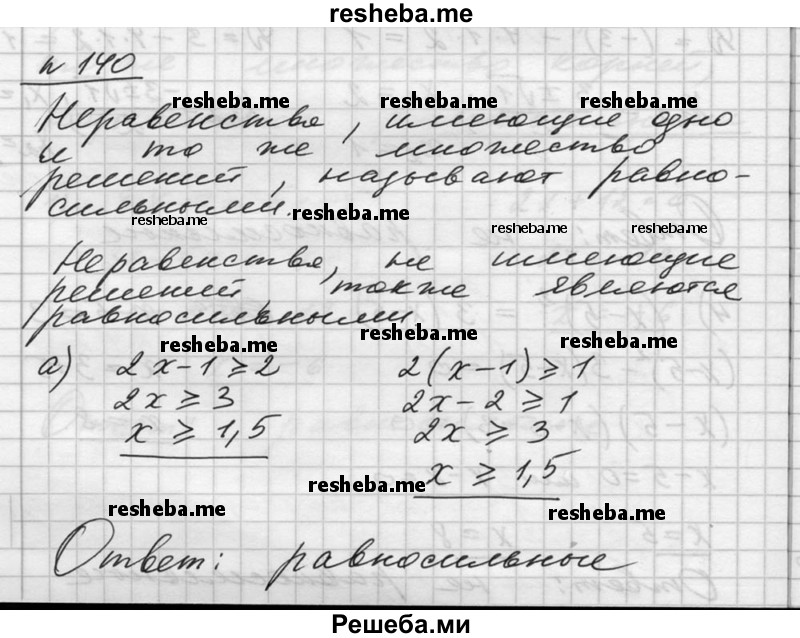 resheba.me
№ 140
resheba.me resheba.me resheba.me
Неравенства, имеющие одно
и то же множество
решений, называют равно-
сильными.
resheba.me resheba.me
resheba.me resheba.me
Неравенства, не имеющие
решений, также являются
равносильными
resheba.me resheba.me resheba.me
а) 2x-1⩾2 2(x-1)⩾1
2x⩾3 2x-2⩾1
x⩾1,5 2x⩾3
x⩾1,5
resheba.me
resheba.me resheba.me
Ответ: равносильные
Решеба.ми